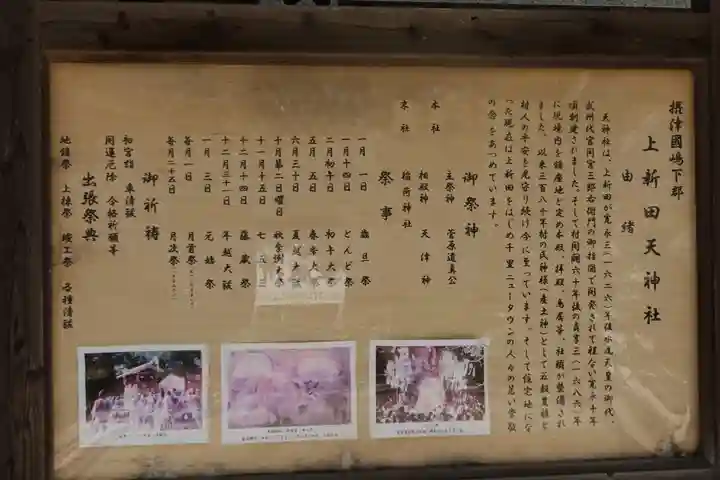 摂津國嶋下郡
上新田天神社
由緒
天神社は、上新田が寛永三(一六二六)年後水尾天皇の御代、
武州代官間宮三郎右衛門の御指図で開発されて程ない寛永十年
頃創建されました。そして村開闢六十年後の貞享三(一六八六)年
に現場内を鎮座地と定め本殿、拝殿、鳥居等、社頭が整備され
ました。以来三百八十年村の氏神様(産土神)として五穀豊穣と
村人の平安を見守り続け今に至っています。そして住宅地にな
った現在は上新田をはじめ千里ニュータウンの人々の思い崇敬
の念をあつめています。
御祭神
本社
主祭神 菅原道真公
相殿神 天津神
末社 稲荷神社
祭事
一月一日 歳旦祭
一月十四日 とんど祭
二月初午日 初午大祭
五月五日 春季大祭
六月三十日 夏越大祓
十月第二日曜日 秋季例大祭
十一月十五日 七五三
十二月十四日 藤蔵祭
十二月三十一日 年越大祓
一月三日 元始祭
毎月一日 月首祭
毎月二十五日 月次祭
御祈祷
初宮詣 車清祓
開運厄除 合格祈願等
出張祭典
地鎮祭 上棟祭 竣工祭 各種清祓